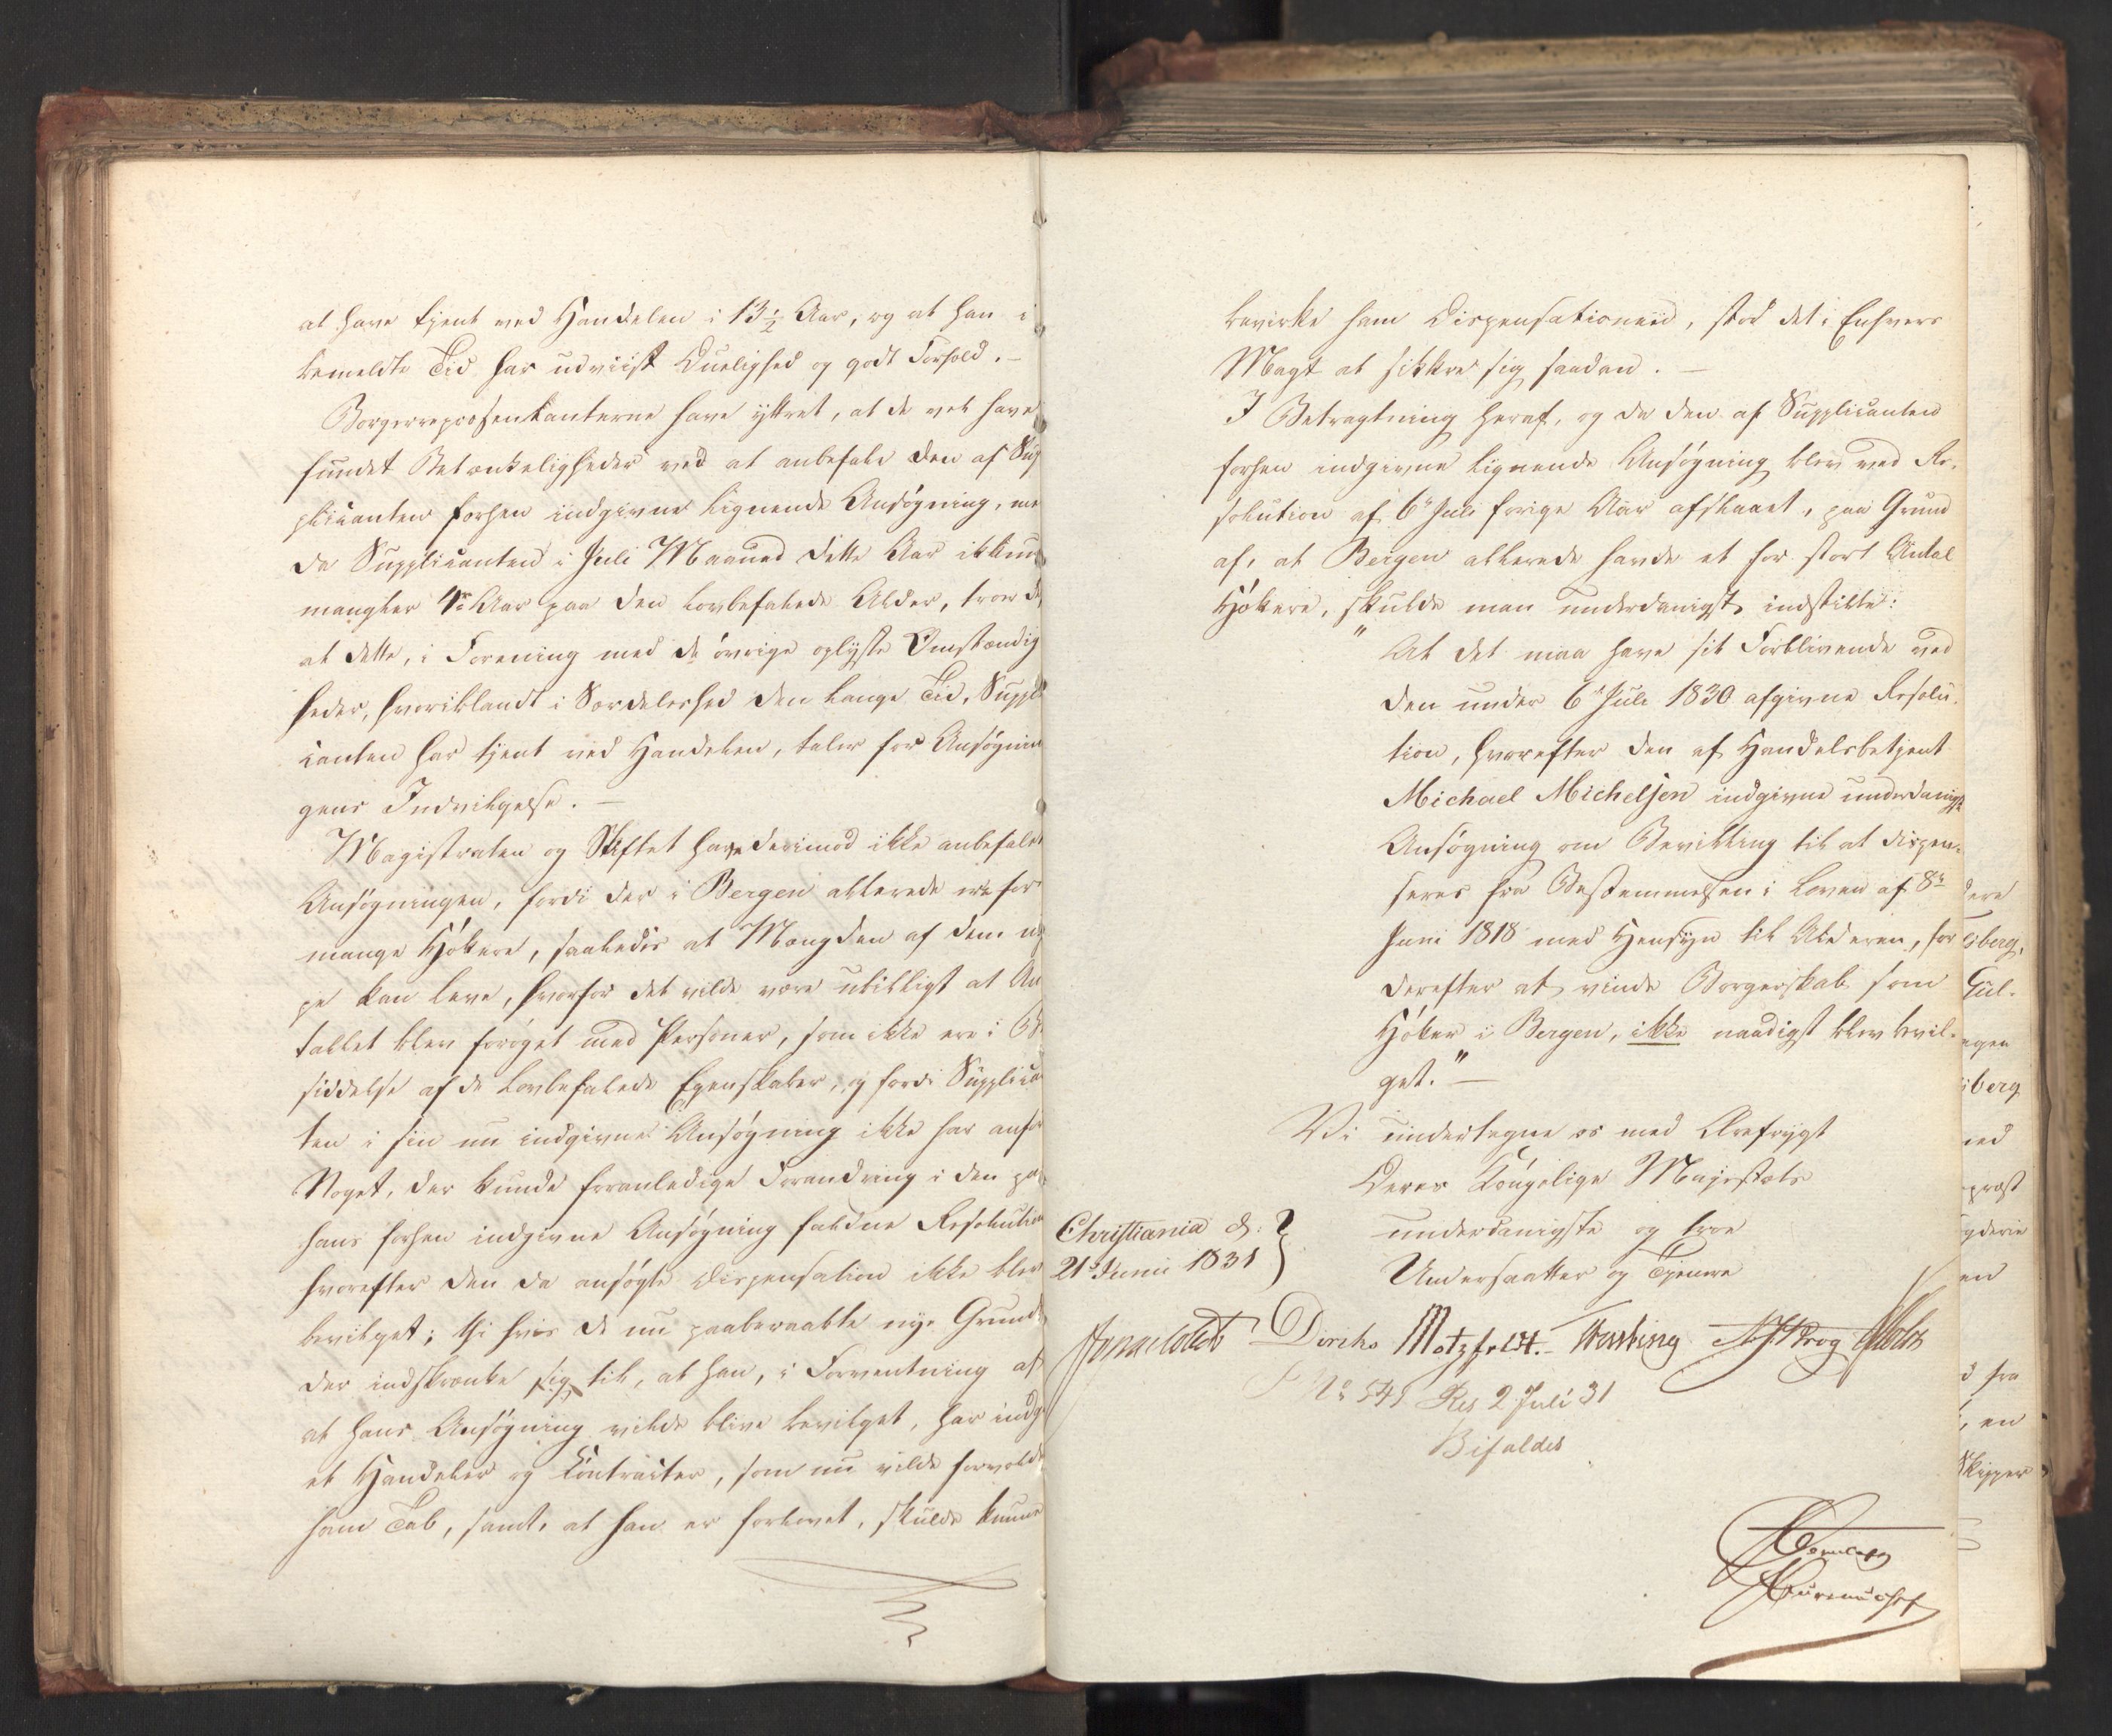 at have tjent ved Handelen i 13½ Aar, og at han i
bemeldte Tid har udviist Duelighed og godt Forhold. —
Borgerrepræsentanterne have yttret, at de vel have
fundet Betænkeligheder ved at anbefale den af Sup
plicanten forhen indgivne lignende Ansøgning, me
da Supplicanten i Juli Maaned dette Aar ikkun
mangler Aar paa den lovbefalede Alder, troer de
at dette, i Forening med de øvrige oplyste Omstændig
heder, hvoriblandt i Særdeleshed den lange Tid, Suppli
canten har tjent ved Handelen, taler for Ansøgnin
gens Indvilgelse. —
Magistraten og Stiftet have derimod ikke anbefalet
Ansøgningen, fordi der i Bergen allerede ere for
mange Høkere, saaledes at Mængden af dem
pe kan leve, hvorfor det vilde være ubilligt at An
tallet blev forøget med Personer, som ikke ere i Be
siddelse af de lovbefalede Egenskaber, og fordi Supplican
ten i sin nu indgivne Ansøgning ikke har anført
Noget, der kunde foranledige Forandring i den paa
hans forhen indgivne Ansøgning faldne Resolution
hvorefter den da ansøgte Dispensation ikke blev
bevilget; thi hvis de nu paaberaabte nye Grunde
der indskrænke sig til, at han, i Forventning af
at hans Ansøgning vilde blive bevilget, har indg
et Handeler og Contracter, som nu vilde forvolde
ham Tab, samt, at han er forlovet, skulde kunne
bevirke ham Dispensationen, stod det i Enhvers
Magt at sikkre sig saadan. —
I Betragtning heraf, og da den af Supplicanten
forhen indgivne lignende Ansøgning blev ved Re-
solution af 6te Juli forige Aar afslaaet, paa Grund
af, at Bergen allerede havde et for stort Antal
Høkere, skulde man underdanigst indstille:
"At det maa have sit Forblivende ved
den under 6te Juli 1830 afgivne Resolu-
tion, hvorefter den af Handelsbetjent
Michael Micheljen indgivne underdanigst
Ansøgning om Bevilling til at dispen-
seres fra Bestemmelsen i Loven af 8de
Juni 1818 med Hensyn til Alderen, for
derefter at vinde Borgerskab som
Høker i Bergen, ikke naadigst blev bevil-
get." —
Vi undertegne os med Ærefrygt
Deres Kongelige Majestæts
underdanigste og troe
Undersaatter og Tjenere
Christiania d:
21de Junii 1831
Diriks Motzfeldt. Krog Holst
No 545 Res 2 Juli 31
Bifaldes
Bureauchef
dere
sberg,
Gul-
agen
sberg
ned
præst
gderie
en
d fra
, en
Skipper